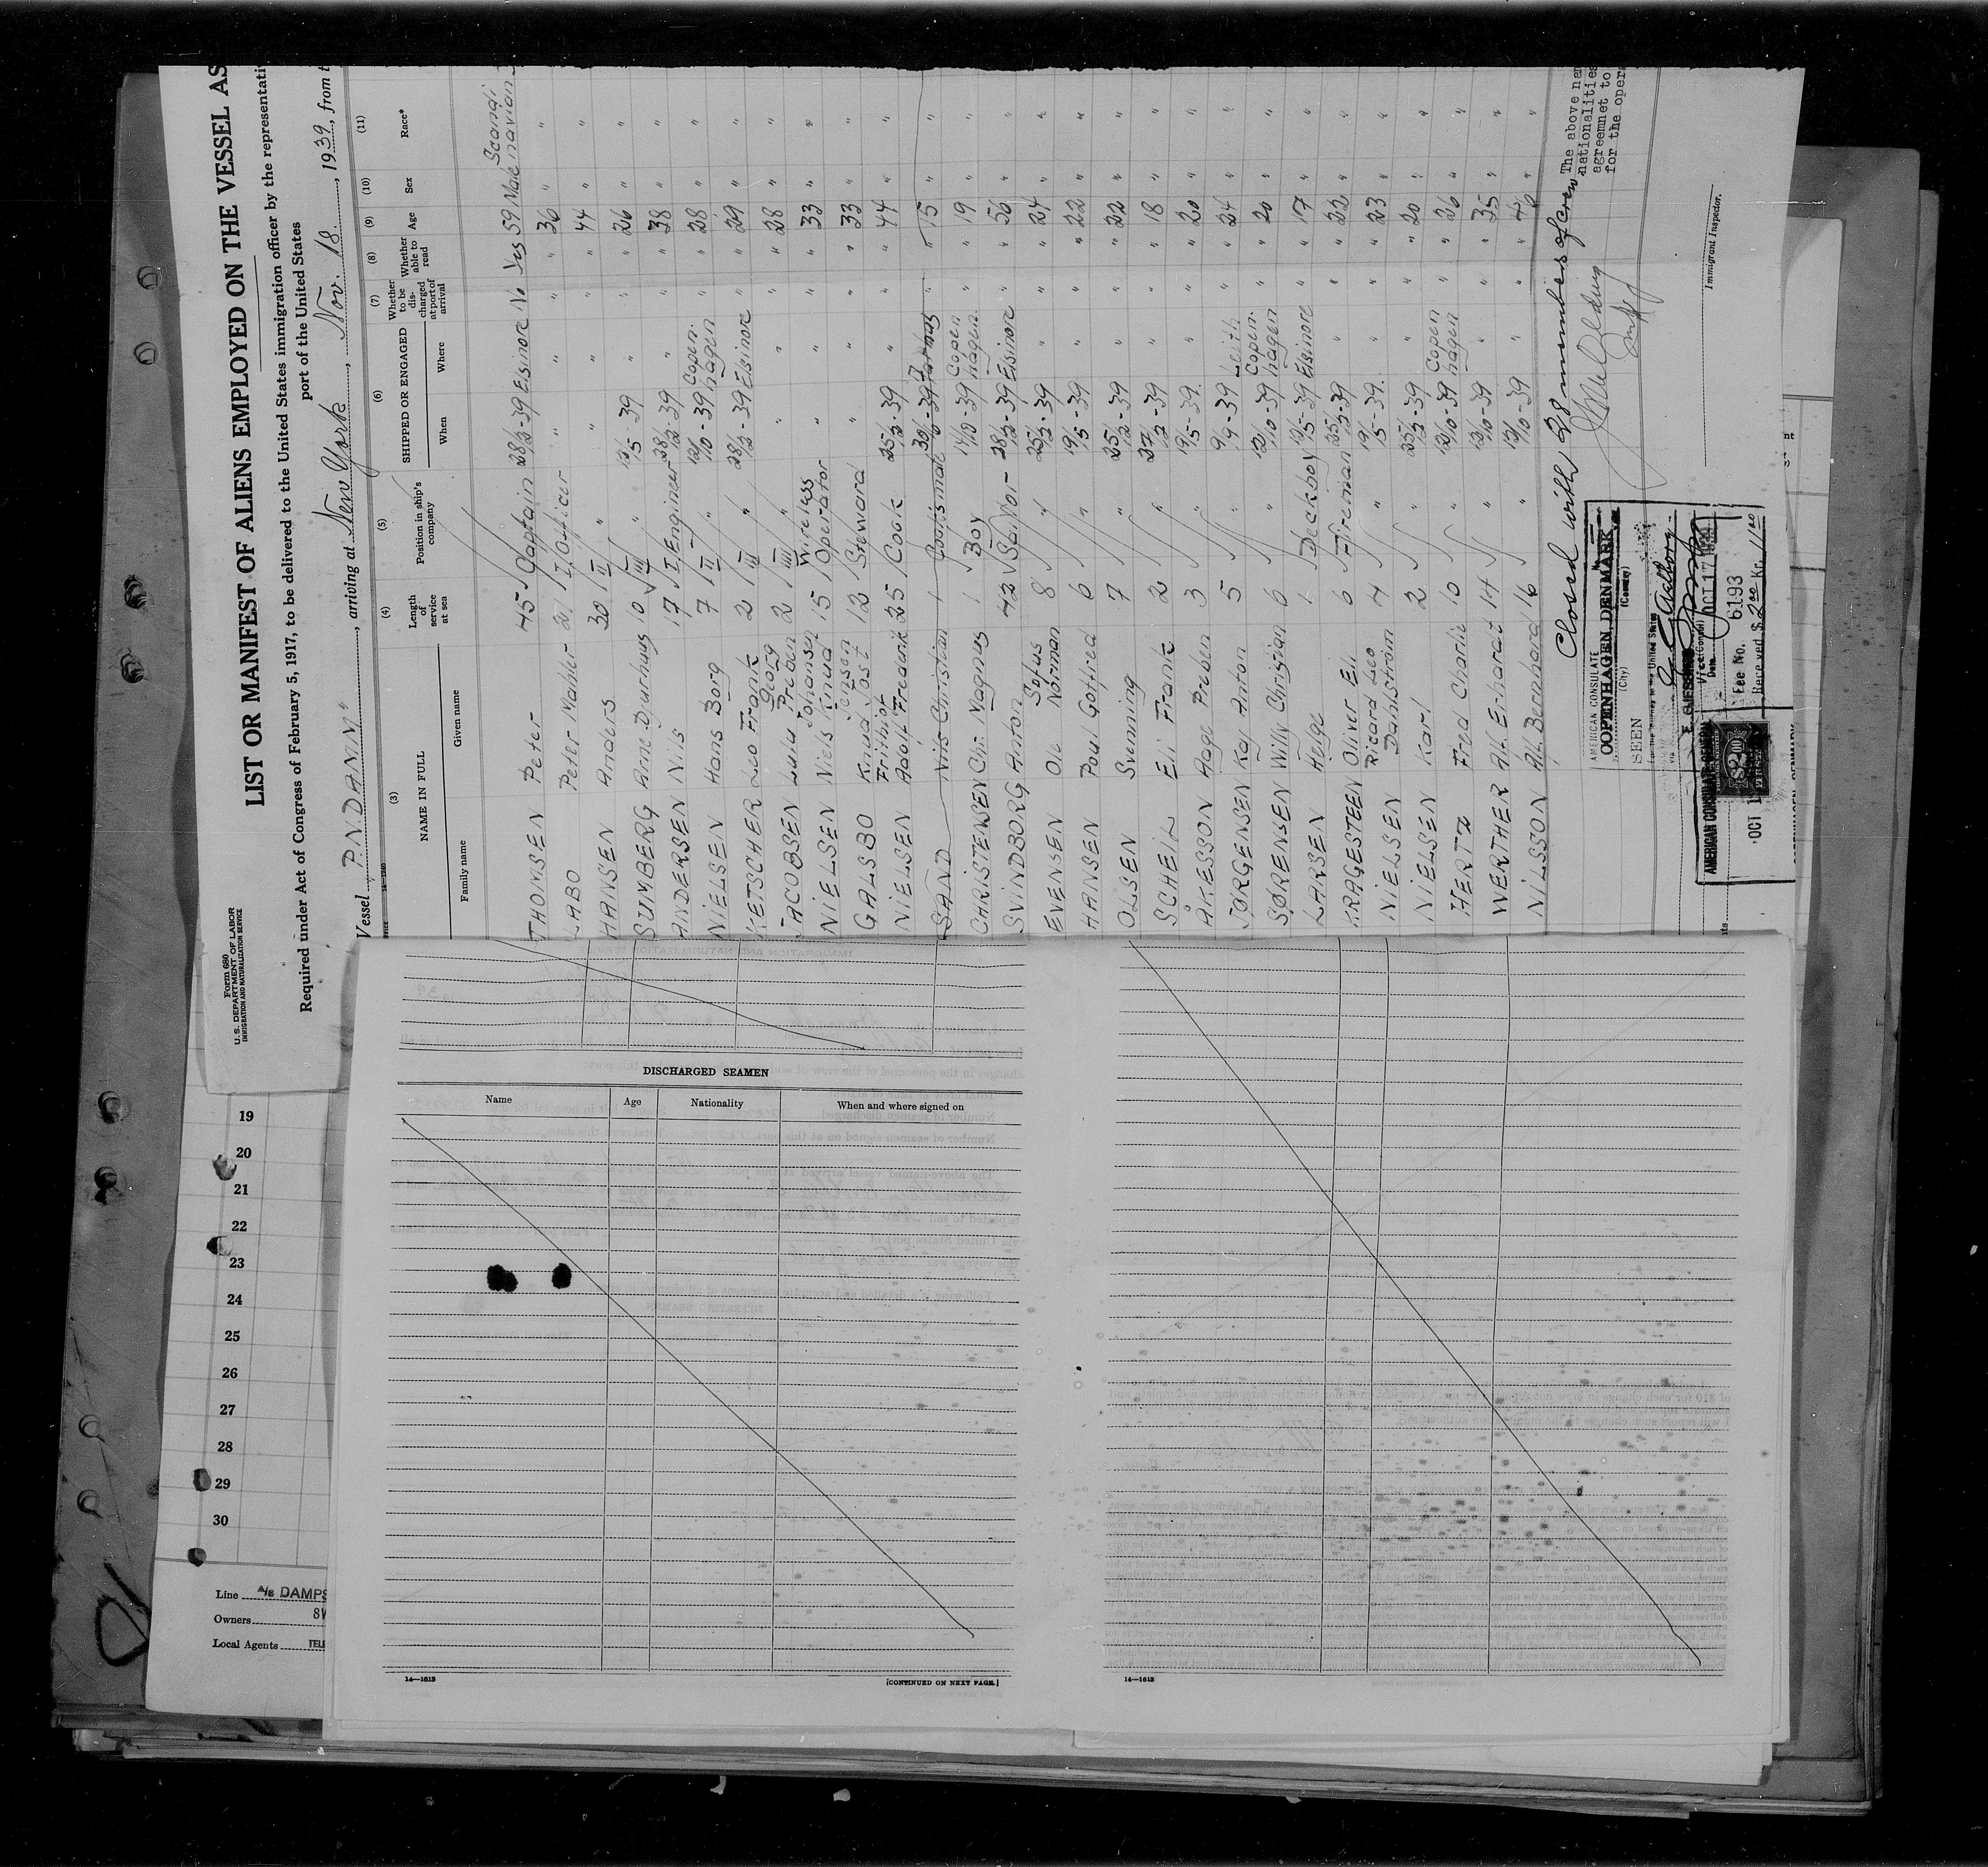 Form 680
U. S. DEPARTMENT OF LABOR
IMMIGRATION AND NATURALIZATION SERVICE
LIST OR MANIFEST OF ALIENS EMPLOYED ON THE VESSEL AS
Required under Act of Congress of February 5, 1917, to be delivered to the United States immigration officer by the representati
port of the United States
Vessel "P.N. DAMM", arriving at New York, Nov. 18, 1939, from t
(3) (4) (5) (6) (7) (8) (9) (10) (11)
NAME IN FULL Length of service at sea Position in ship's company SHIPPED OR ENGAGED Whether to be discharged at port of arrival Whether able to read Age Sex Race*
Family name Given name When Where
THOMSEN Peter 45 Captain 28/2-39 Elsinore No Yes 59 Male Scandinavian
LABO Peter Mahler 21 I. Officer " " " " 36 " "
HANSEN Anders 30 II " " " " " 44 " "
SUMBERG Arne 10 III " 12/5-39 " " " 26 " "
ANDERSEN Nils 17 I Engineer 28/2-39 " " " 38 " "
NIELSEN Hans Borg 7 II " 12/10-39 Copenhagen " " 28 " "
KETSCHER Leo Frank Georg 2 III " 28/2-39 Elsinore " " 29 " "
JACOBSEN Lulu Preben 2 IIII " " " " " 28 " "
NIELSEN Niels Knud Johansen 15 Wireless Operator " " " " 33 " "
GALSBO Knud Jost Jensen 12 Steward " " " " 33 " "
NIELSEN Frithiof Adolf Frederik 25 Cook 25/2-39 " " " 44 " "
SAND Nils Christian 1 Cooksmate Aarhus " " 15 " "
CHRISTENSEN Chr. Magnus 1 Boy 14/10-39 Copenhagen " " 19 " "
SVINDBORG Anton 42 Sailor 28/2-39 Elsinore " " 56 " "
EVENSEN Ole Sofus Norman 8 " 25/2-39 " " " 24 " "
HANSEN Poul Gotfred 6 " 19/5-39 " " " 22 " "
OLSEN Svenning 7 " 25/2-39 " " " 22 " "
SCHEIL Eli Frank 2 " 27/2-39 " " " 18 " "
ÅKESSON Aage Preben 3 " 19/5-39 " " " 20 " "
JØRGENSEN Kaj Anton 5 " 9/9-39 Leith " " 24 " "
SØRENSEN Willy Christian 6 " 12/10-39 Copenhagen " " 20 " "
LARSEN Helge 1 Deckboy 12/5-39 Elsinore " " 17 " "
KRAGESTEEN Oliver Eli 6 Fireman 25/2-39 " " " 22 " "
NIELSEN Ricard Leo Dahlström 4 " 19/5-39 " " " 23 " "
NIELSEN Karl 2 " 25/2-39 " " " 20 " "
HERTZ Fred Charlie 10 " 12/10-39 Copenhagen " " 26 " "
WERTHER Alf. Erhardt 14 " 12/10-39 " " " 35 " "
NILSSON Alf. Bernhard 16 " 12/10-39 " " " "
Closed with 28 members of crew
The above nam
nationalities
agreemnet to
for the opera
Immigrant Inspector.
AMERICAN CONSULATE
COPENHAGEN, DENMARK
(City) (Country)
SEEN
Aalborg
Vice Consul
Date OCT 17 1939
Fee No. 6193
Received $ 2.00 Kr.
AMERICAN CONSULATE GENERAL
$2.00
OCT
19
20
21
22
23
24
25
26
27
28
29
30
Line A/S DAMPS
Owners
Local Agents TELE
DISCHARGED SEAMEN
Name Age Nationality When and where signed on
14—1613 [CONTINUED ON NEXT PAGE.]
14—1613